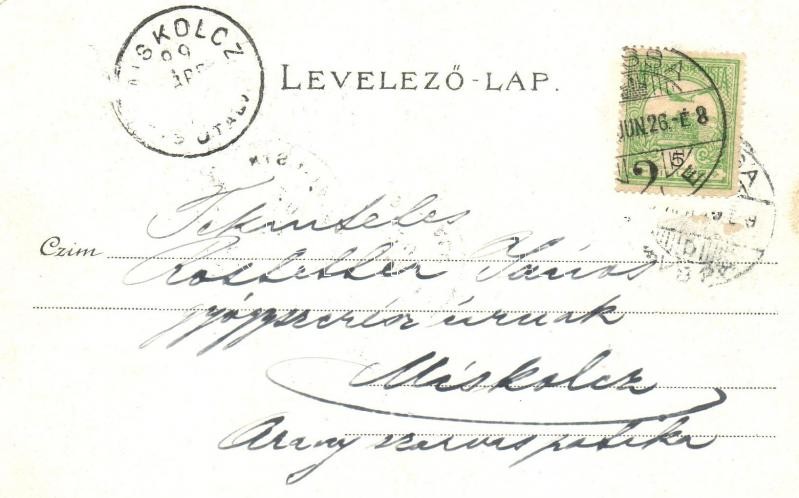 MISKOLCZ
99
LEVELEZŐ-LAP.
JUN. 26.-É 8
5
Tekintetes
Czim Rostetter János
gyógyszerész úrnak
Miskolcz
Arany szarvas patika